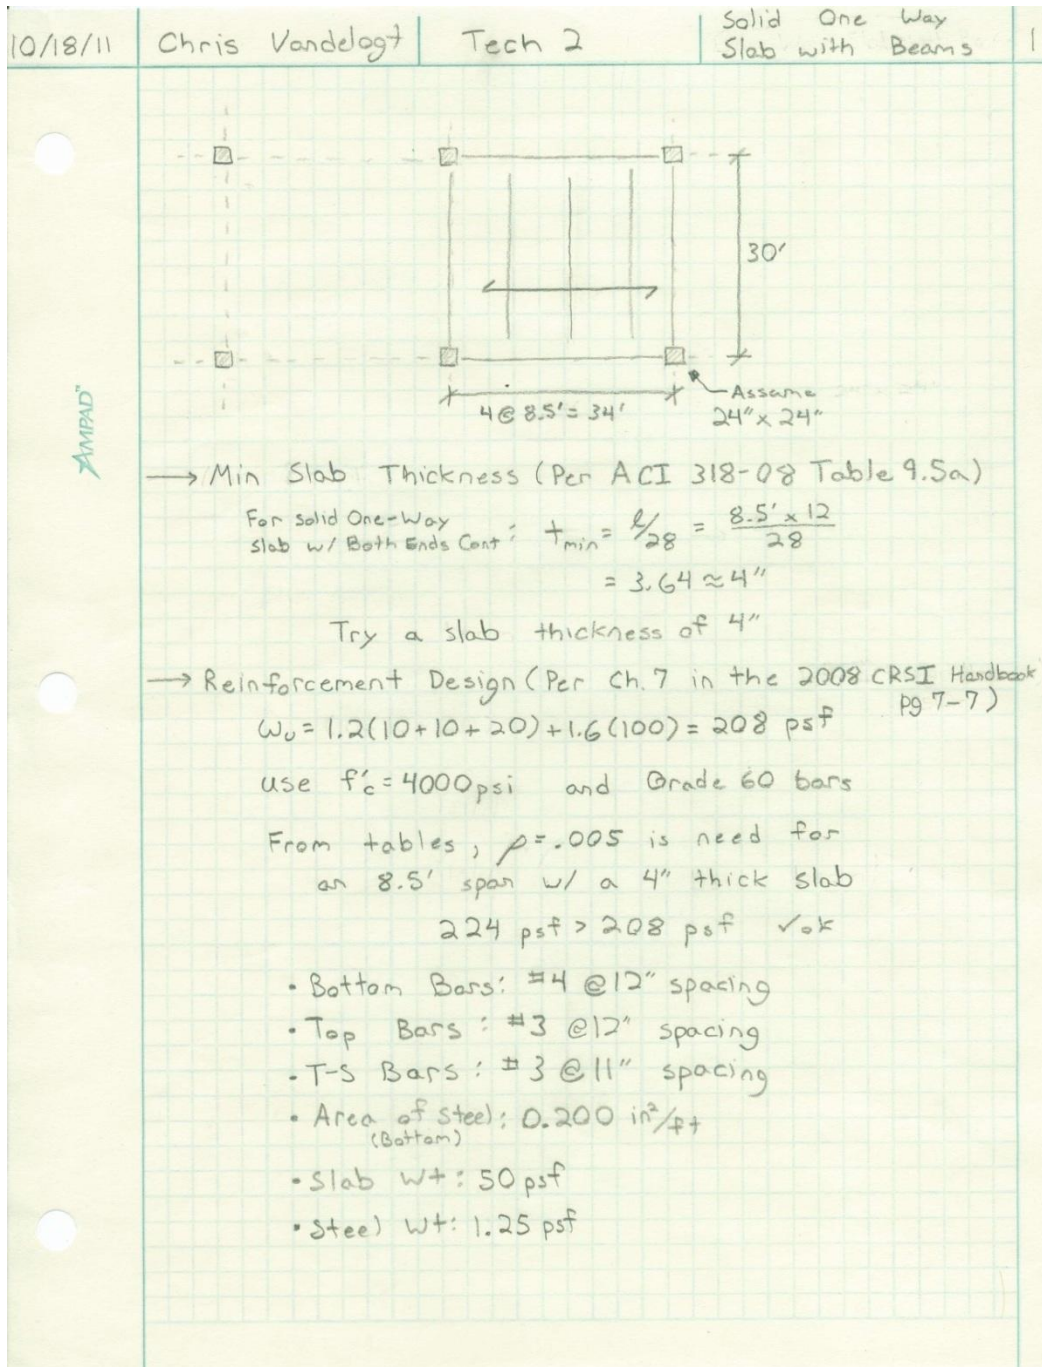 10/18/11
Chris Vandelogt
Tech 2
Solid One Way
Slab with Beams
1
30'
4 @ 8.5' = 34'
Assume
24" x 24"
AMPAD™
→ Min Slab Thickness (Per ACI 318-08 Table 9.5a)
For Solid One-Way
Slab w/ Both Ends Cont : tmin = l/28 = 8.5' x 12 / 28
= 3.64 ≈ 4"
Try a slab thickness of 4"
→ Reinforcement Design (Per Ch. 7 in the 2008 CRSI Handbook
pg 7-7)
ωu = 1.2(10+10+20)+1.6(100) = 208 psf
use f'c = 4000psi and Grade 60 bars
From tables, ρ=.005 is need for
an 8.5' span w/ a 4" thick slab
224 psf > 208 psf ✓ok
• Bottom Bars: #4 @12" spacing
• Top Bars : #3 @12" spacing
• T-S Bars : #3 @ 11" spacing
• Area of Steel: 0.200 in²/ft
(Bottom)
• Slab Wt : 50 psf
• Steel Wt: 1.25 psf